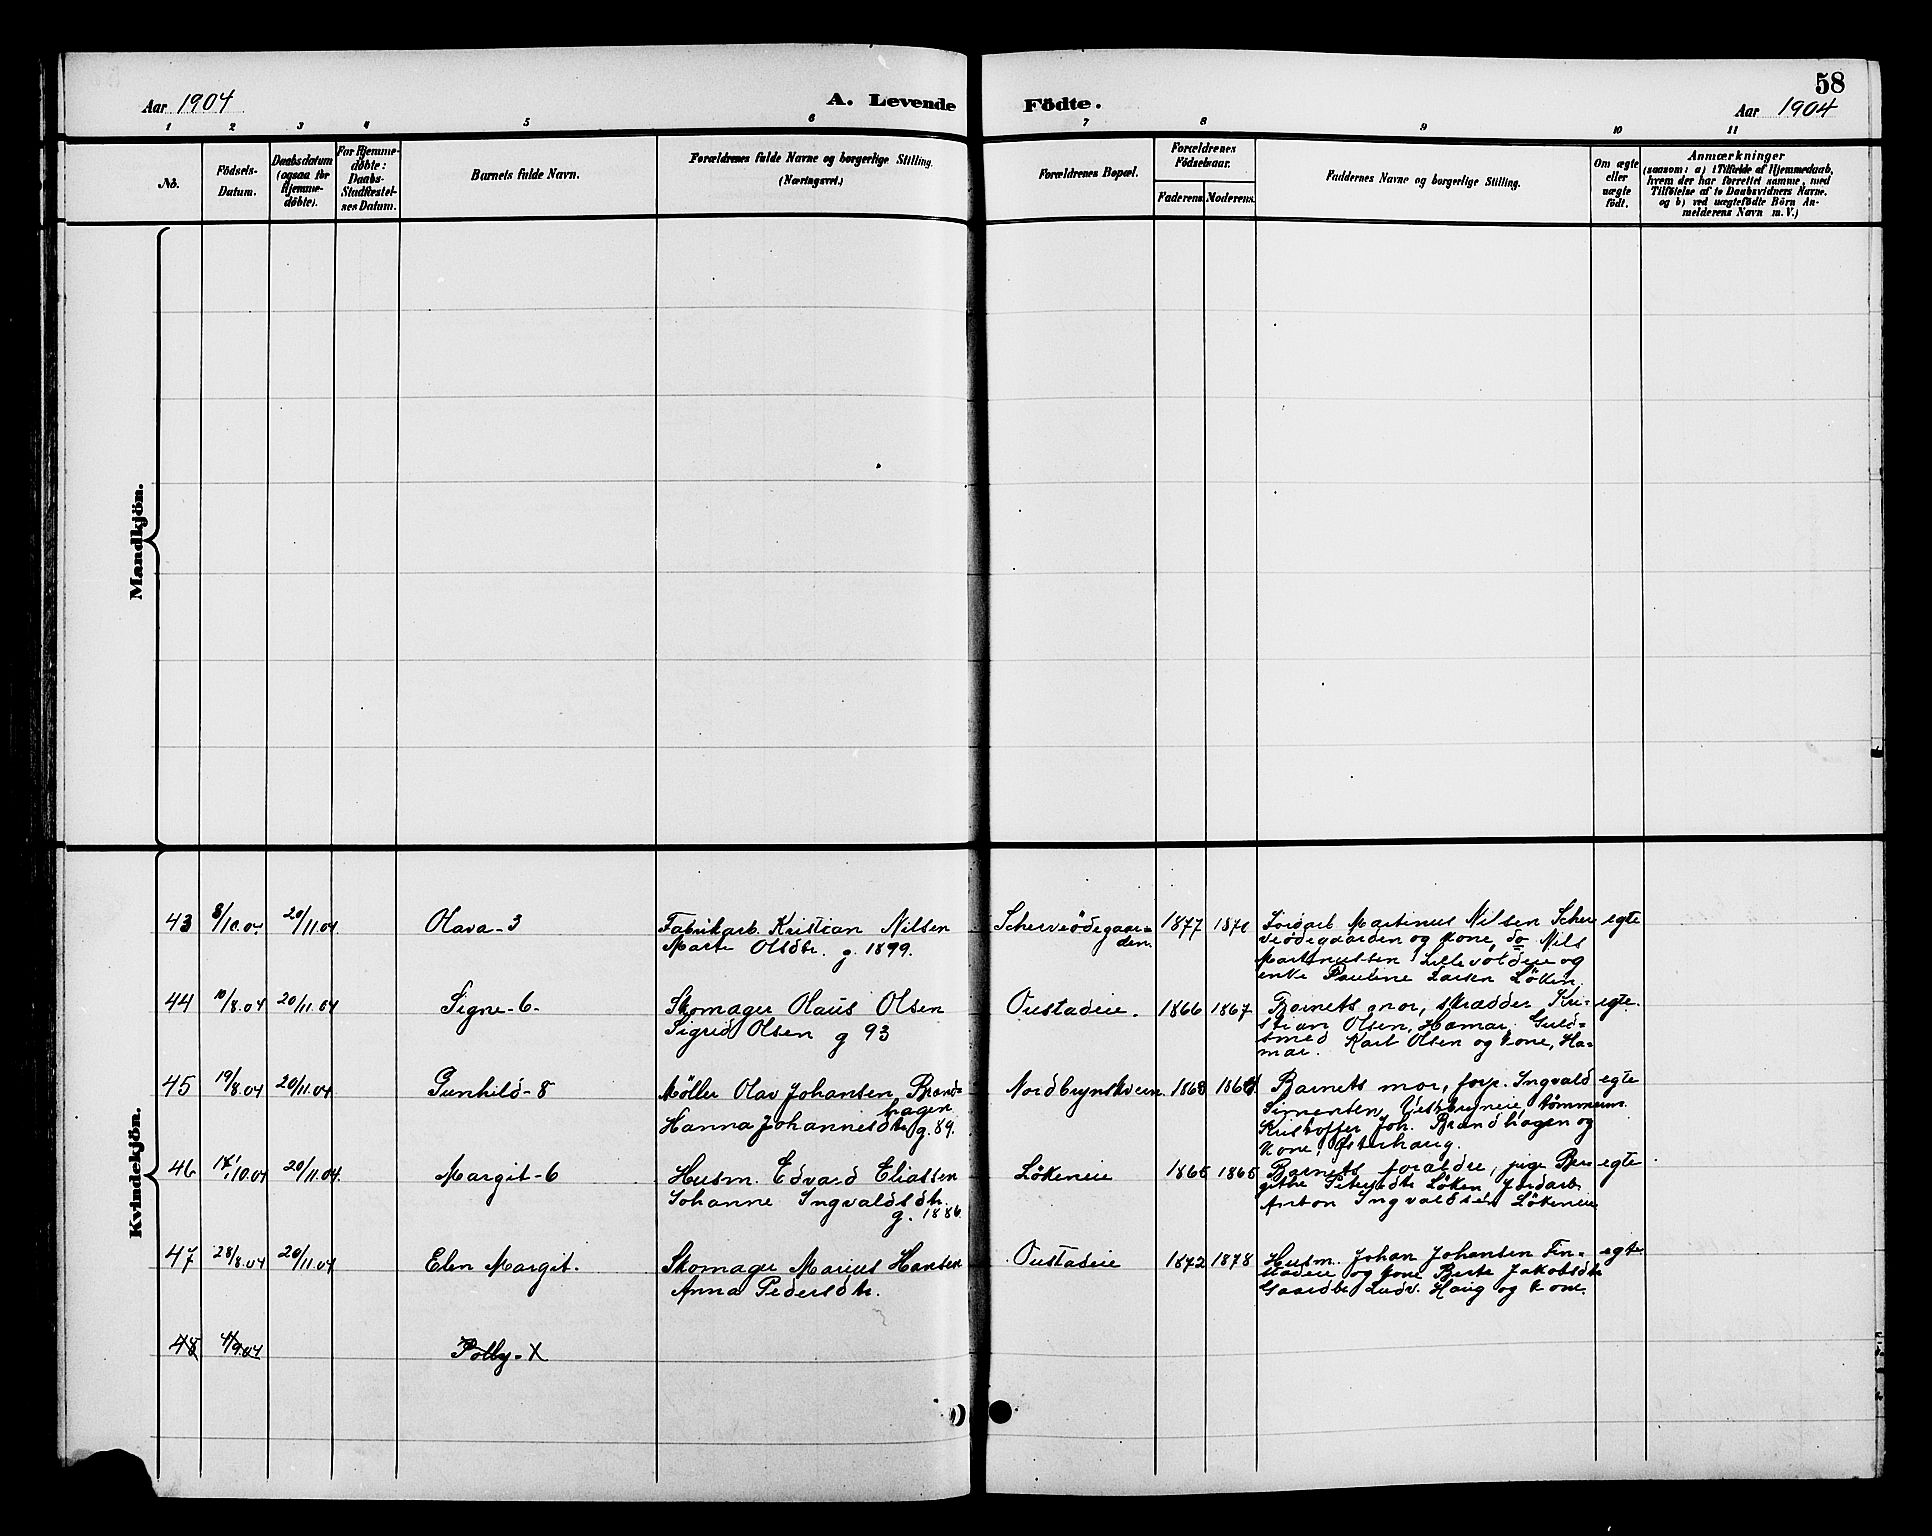 58
Aar 1904
A. Levende Födte.
Aar 1904
1 2 3 4 5 6 7 8 9 10 11
No.
Födsels-
Datum.
Daabsdatum
(ogsaa for
Hjemme-
døbte).
For Hjemme-
døbte:
Daabs-
Stadfæstel-
ses Datum.
Barnets fulde Navn.
Forældrenes fulde Navne og borgerlige Stilling.
(Næringsvei.)
Forældrenes Bopæl.
Forældrenes
Födselsaar.
Faderens. Moderens.
Faddernes Navne og borgerlige Stilling.
Om ægte
eller
uægte
födt.
Anmærkninger
(saasom: a) i Tilfælde af Hjemmedaab,
hvem der har forrettet samme, med
Tilføielse af to Daabsvidners Navne,
og b) ved uægtefödte Börn An-
melderens Navn m. V.)
Mandkjön.
Kvindekjön.
43 8/10.04 20/11.04 Olava-3
Fabrikarb. Kristian Nilsen
Marte Olsdtr. g. 1899.
1877
Jordarb Martinus Nilsen Scher
veödegaarden og kone, do Nils
Martinussen Lillevoldeie og
enke Pauline Larsen Löken
egte
44 10/8.04 20/11.04 Signe-6-
Skomager Olaus Olsen
Sigrid Olsen g 93
Oustadeie. 1866 1867
Barnets mor, skrædder Kri-
stian Olsen, Hamar, Guld-
smed Karl Olsen og kone, Ha-
mar.
egte.
45 19/8.04 20/11.04 Gunhild-8
Møller Olav Johansen Brand-
hagen
Hanna Johannesdtr g. 89.
Nordbrynskvern. 1868
Barnets mor, forp. Ingvald
Simensen, Vestbryneie, tømmerm.
Kristoffer Joh. Brandhagen og
kone, Østerhaug.
egte
46 14/10.04 20/11.04. Margit-6
Husm. Edvard Eliassen
Johanne Ingvaldsdtr.
g. 1886.
Lökeneie 1865 1865
Barnets forældre, pige Ber
githe Petersdtr Löken Jordarb.
Anton Ingvaldsen Lökeneie
egte
47 28/8.04 20/11.04 Elen Margit.
Skomager Marius Hansen
Anna Pedersdtr.
Oustadeie 1872 1878
Husm. Johan Johansen Fin-
stadeie og kone Berte Jakobsdtr
Gaardbr Ludv. Haug og kone
egte
48 4/9.04 Polly-X